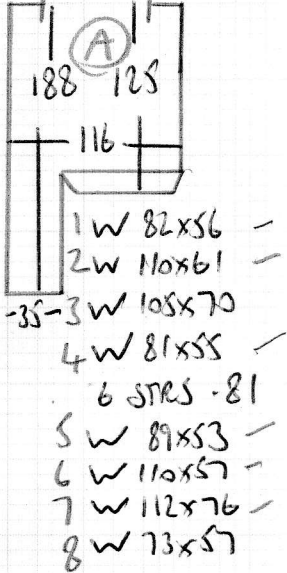 A
188 125
116
1 W 82x56 -
2 W 110x61 -
-35- 3 W 105x70
4 W 81x55 -
6 STRS - 81
5 W 89x53 -
6 W 110x57 -
7 W 112x76 -
8 W 73x57